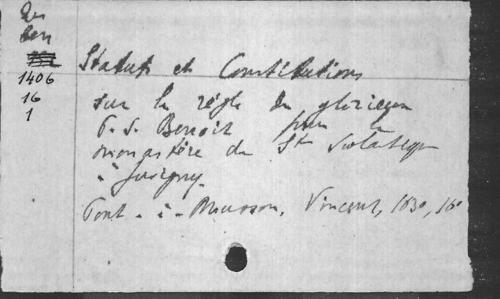 Ben
1406
16
1
Statuts et Constitutions
sur la règle du glorieux
P. S. Benoit pour le
monastère de Ste Scolastique
à Juvigny.
Pont-à-Mousson, Vincent, 1630, 16°